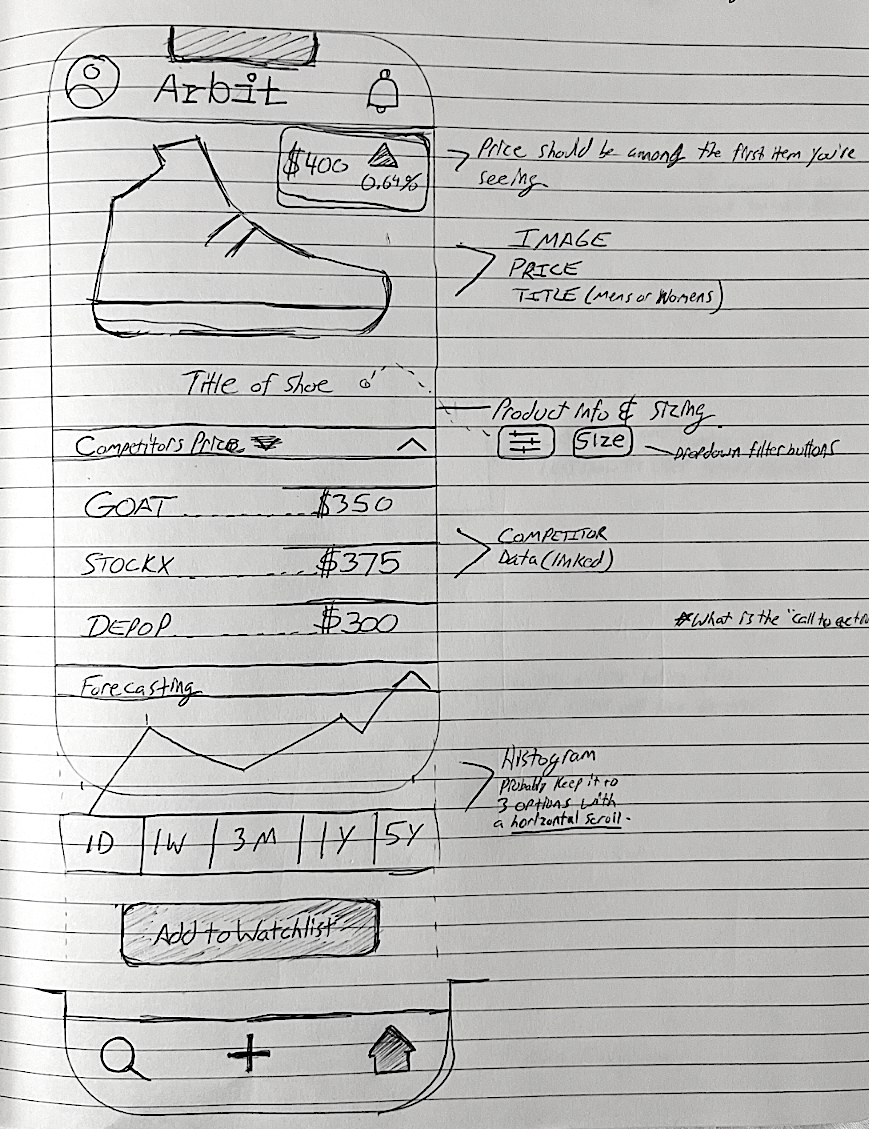 Arbit
$400
0.64%
Price should be among the first item you're
seeing.
IMAGE
PRICE
TITLE (Mens or Womens)
Title of Shoe
Product info & sizing
Competitors Price
Size
Dropdown filter buttons
GOAT $350
STOCKX $375
DEPOP $300
COMPETITOR
Data (linked)
*What is the "call to
Forecasting
Histogram
Probably keep it to
3 options with
a horizontal scroll.
1D 1W 3M 1Y 5Y
Add to Watchlist